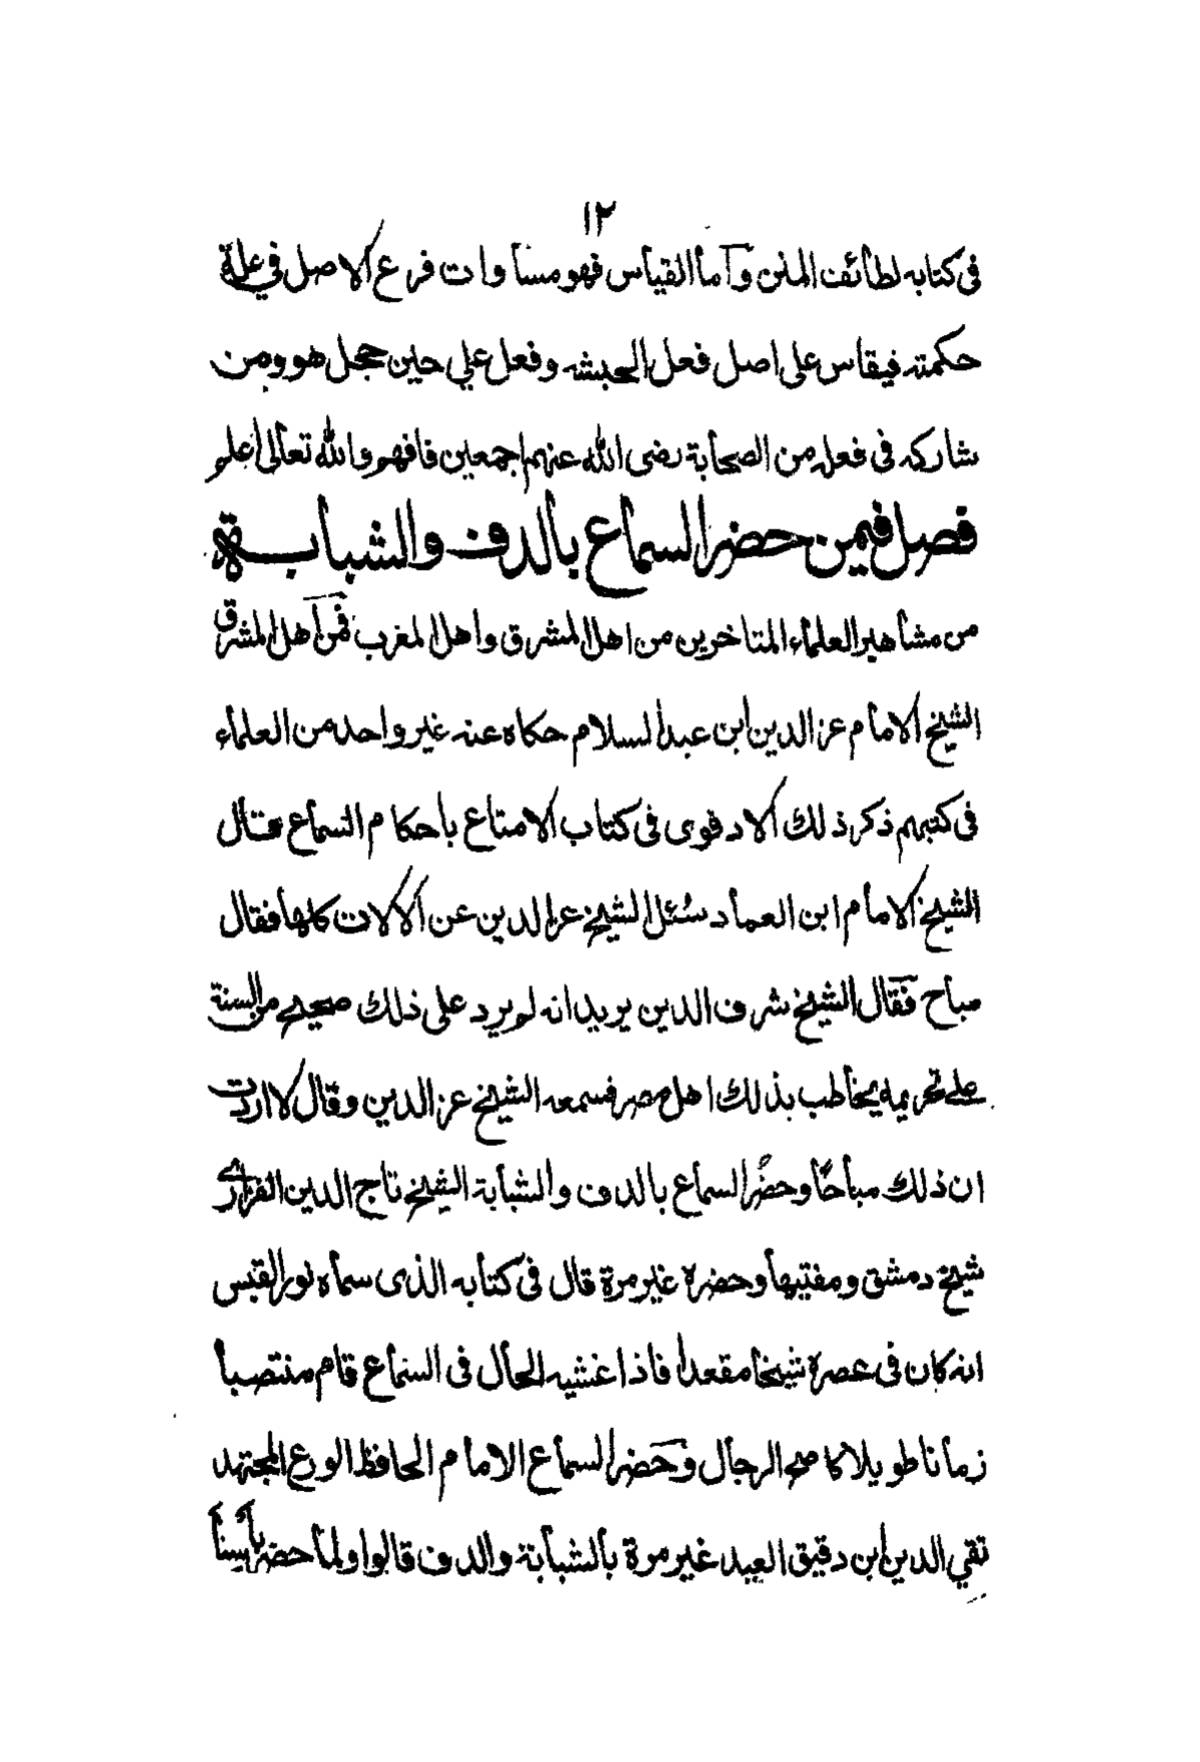 ١٢
فى كتابه لطائف المنن وأما القياس فهو مساوات فرع الاصل في علة
حكمته فيقاس على اصل فعل الحبشه وفعل علي حين حجل هو ومن
شاركه فى فعله من الصحابة رضى الله عنهم اجمعين فافهم والله تعالى اعلم
فصل فيمن حضر السماع بالدف والشبابة
من مشاهير العلماء المتاخرين من اهل المشرق واهل المغرب فمن اهل المشرق
الشيخ الامام عز الدين ابن عبد السلام حكاه عنه غير واحد من العلماء
فى كتبهم ذكر ذلك الادفوى فى كتاب الامتاع باحكام السماع فقال
الشيخ الامام ابن العماد سئل الشيخ عز الدين عن الالات كلها فقال
مباح فقال الشيخ شرف الدين يريد انه لم يرد على ذلك صحيح من السنة
على تحريمه يخاطب بذلك اهل مصر فسمعه الشيخ عز الدين وقال لا اردت
ان ذلك مباحًا وحضر السماع بالدف والشبابة الشيخ تاج الدين الفزارى
شيخ دمشق ومفتيها وحضره غير مرة قال فى كتابه الذى سماه نور القبس
انه كان فى عصره شيخا مقعدا فاذا غشيه الحال فى السماع قام منتصبا
زمانا طويلا كاصح الرجال وحضر السماع الامام الحافظ الورع المجتهد
تقي الدين ابن دقيق العيد غير مرة بالشبابة والدف قالوا ولما حضر